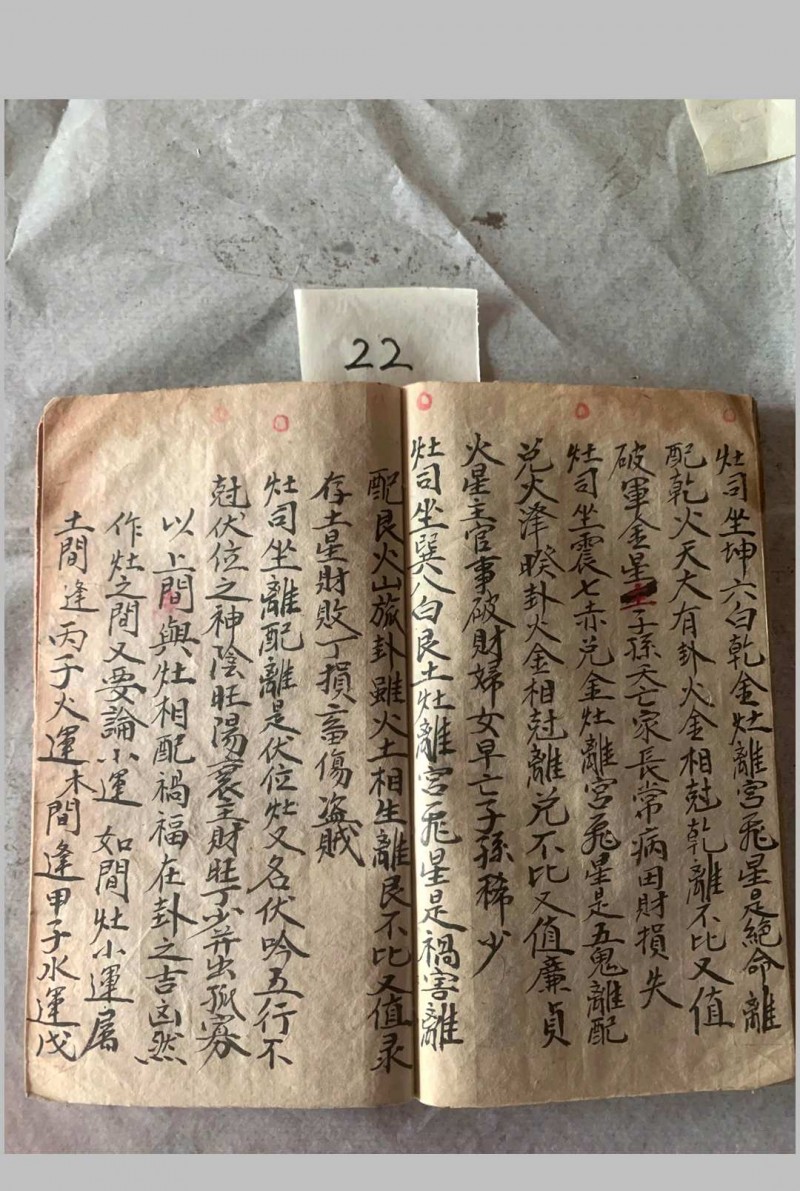 22
灶司坐坤六白乾金灶離宮飛星是絕命離
配乾火天大有卦火金相尅乾離不比又值
破軍金星子孫夭亡家長常病田財損失
灶司坐震七赤兌金灶離宮飛星是五鬼離配
兌火澤睽卦火金相尅離兌不比又值廉貞
火星主官事破財婦女早亡子孫稀少
灶司坐巽八白艮土灶離宮飛星是禍害離
配艮火山旅卦雖火土相生離艮不比又值彔
存土星財敗丁損畜傷盜賊
灶司坐離配離是伏位灶又名伏吟五行不
尅伏位之神陰旺陽衰主財旺丁少并出孤寡
以上間與灶相配禍福在卦之吉凶然
作灶之間又要論小運 如間灶小運屬
土間逢丙子火運木間逢甲子水運戊